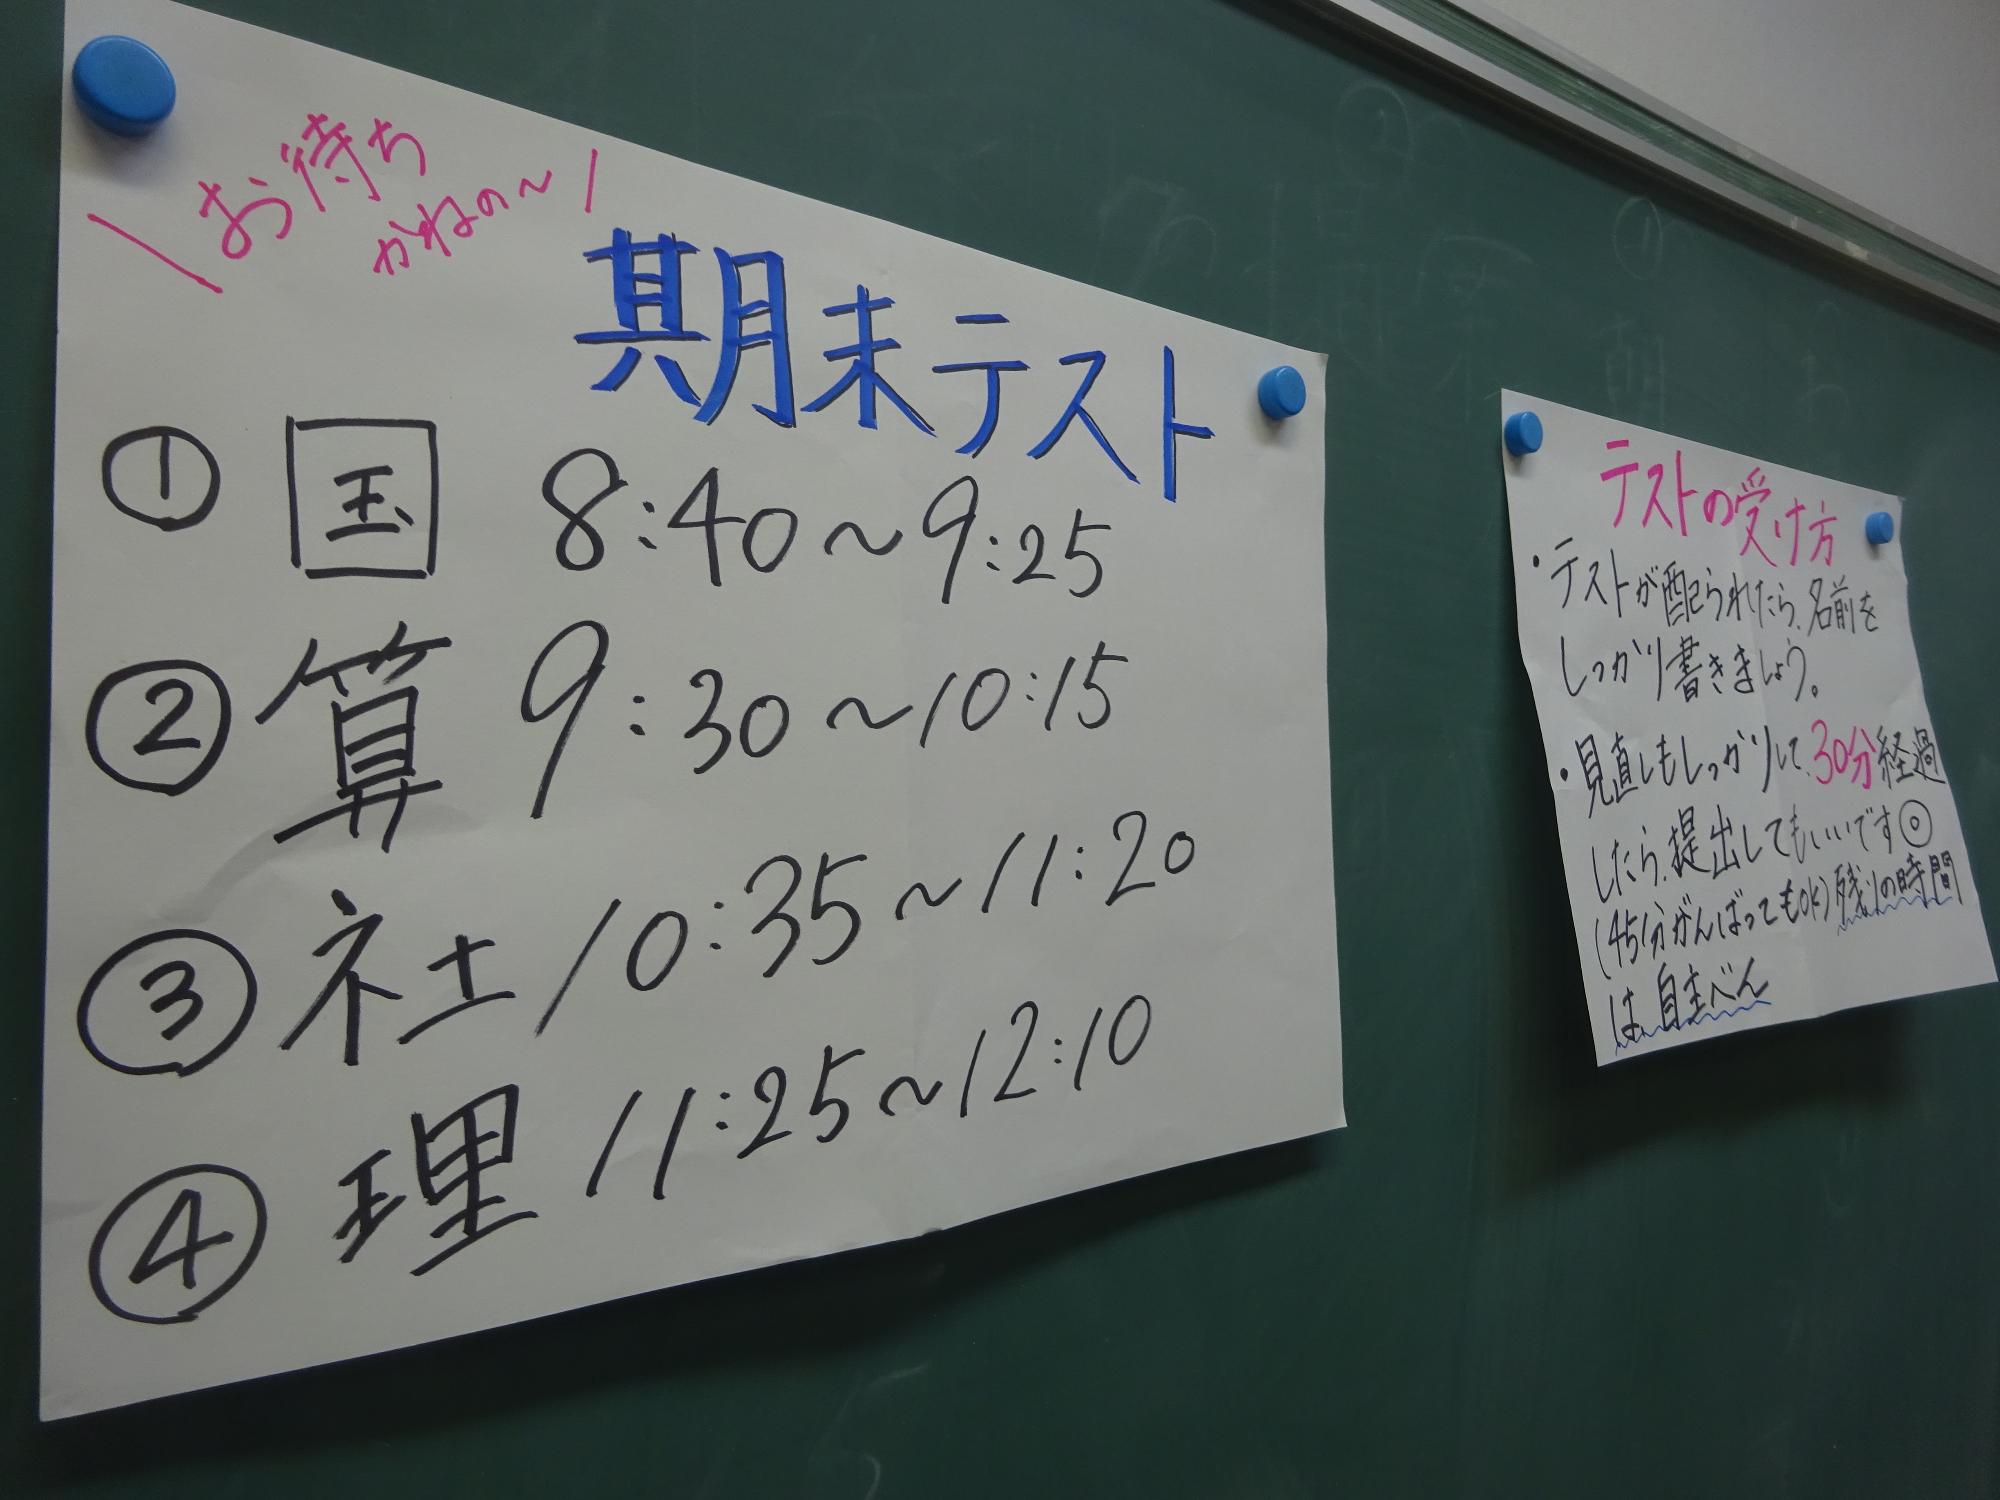 \お待ち
かねの〜/
期末テスト
① 国 8:40〜9:25
② 算 9:30〜10:15
③ 社 10:35〜11:20
④ 理 11:25〜12:10
テストの受け方
・テストが配られたら、名前を
しっかり書きましょう。
・見直しもしっかりして、30分経過
したら、提出してもいいです◎
(45分がんばってもOK)残りの時間
は、自主べん